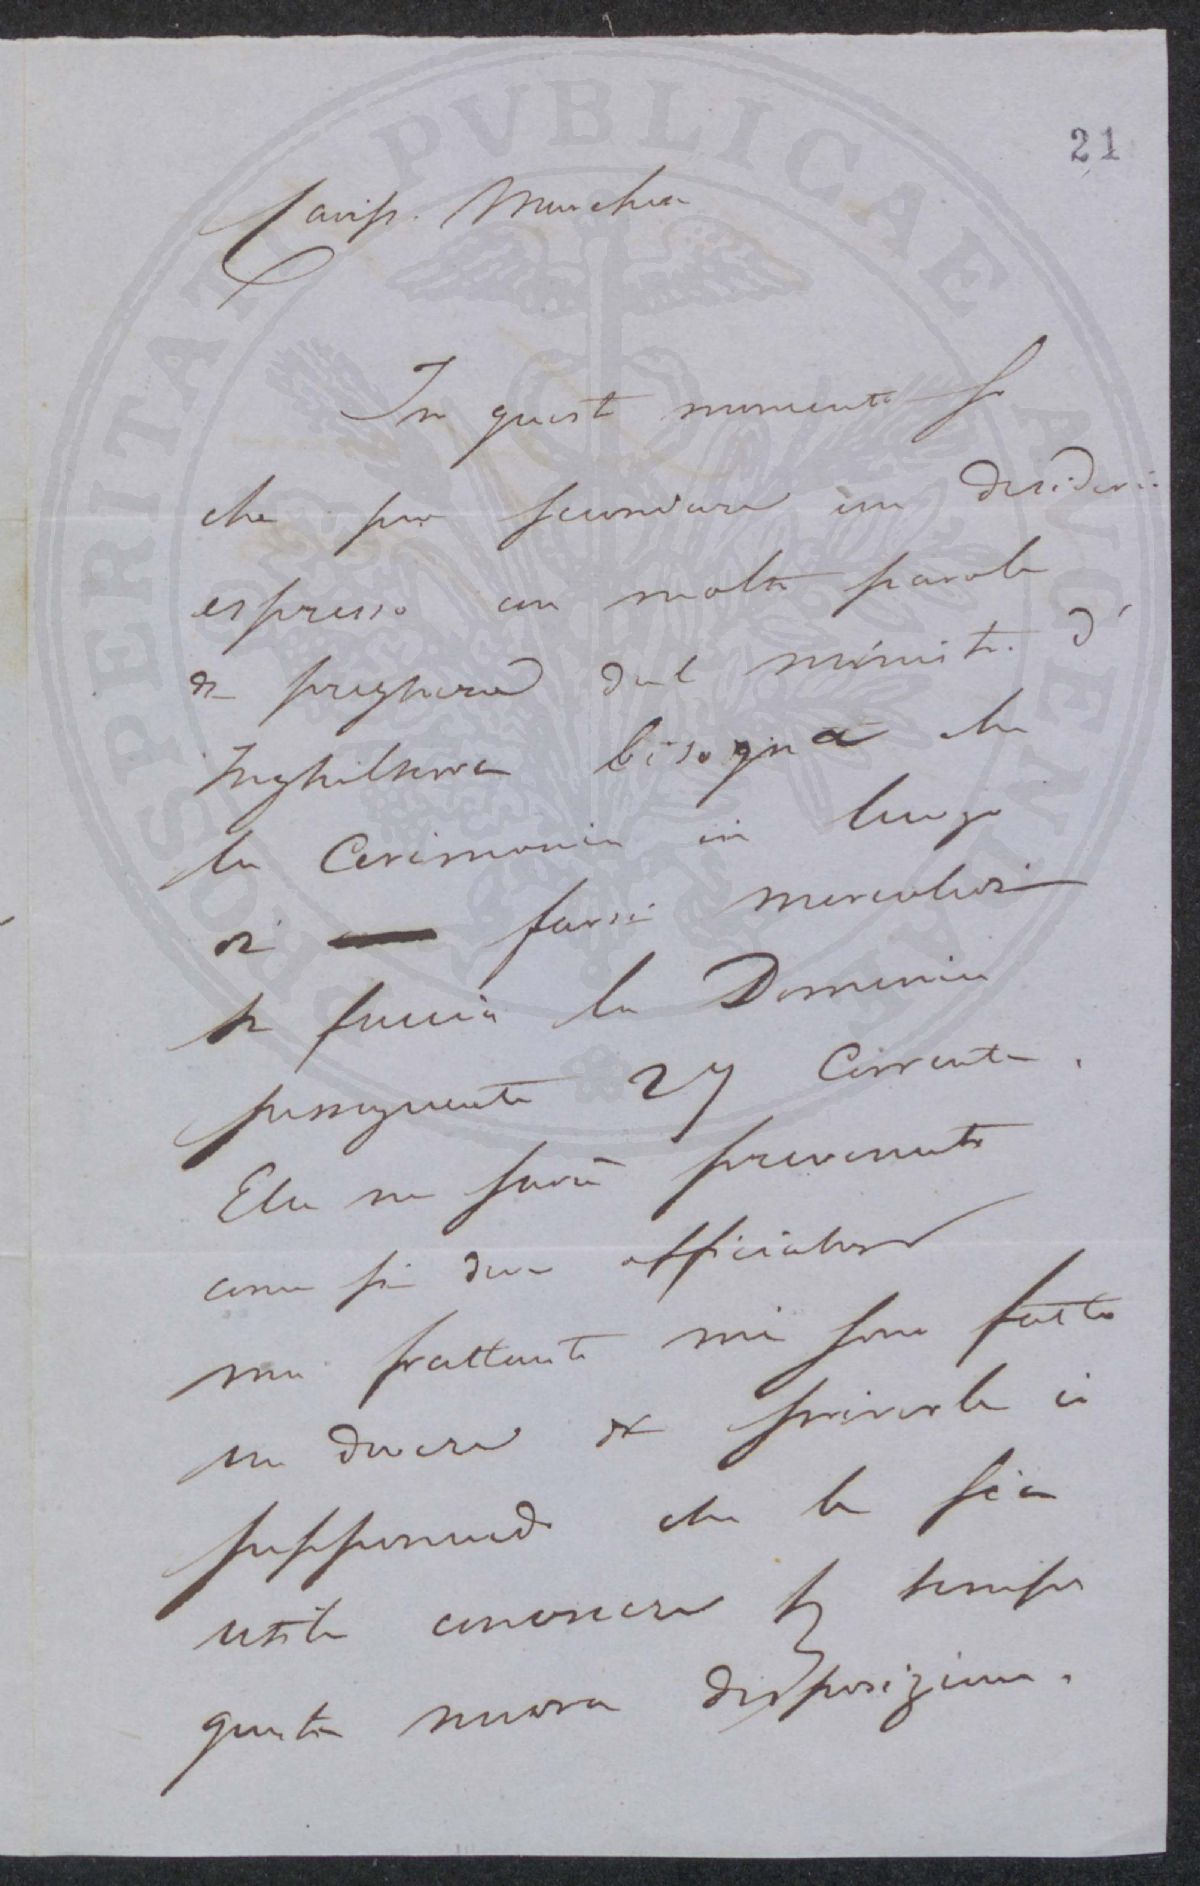 21
Cariss. Marchesa
In questo momento so
che per secondare un desiderio
espresso con molte parole
di preghiera dal ministro d'
Inghilterra bisogna che
la Cerimonia in luogo
di farsi mercoledì
si faccia la Domenica
susseguente 27 Corrente.
Ella ne sarà prevenuta
come si deve officialmente
ma frattanto mi sono fatto
un dovere di scriverle
supponendo che le sia
utile conoscere per tempo
questa nuova disposizione.
PROSPERITATI PVBLICAE AVGENDAE